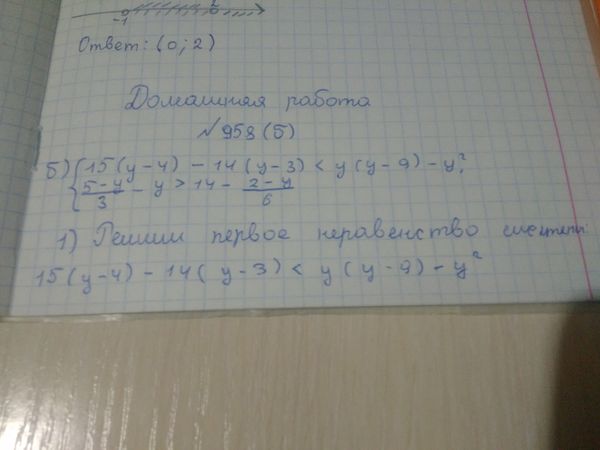 -1 2
Ответ: (0; 2)
Домашняя работа
№958(б)
б) { 15(y-4) - 14(y-3) < y(y-9) - y²,
5-y/3 - y > 14 - 2-y/6
1) Решим первое неравенство системы:
15(y-4) - 14(y-3) < y(y-9) - y²